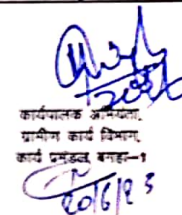 कार्यपालक अभियंता,
ग्रामीण कार्य विभाग,
कार्य प्रमंडल, बगहा-1
20/6/23